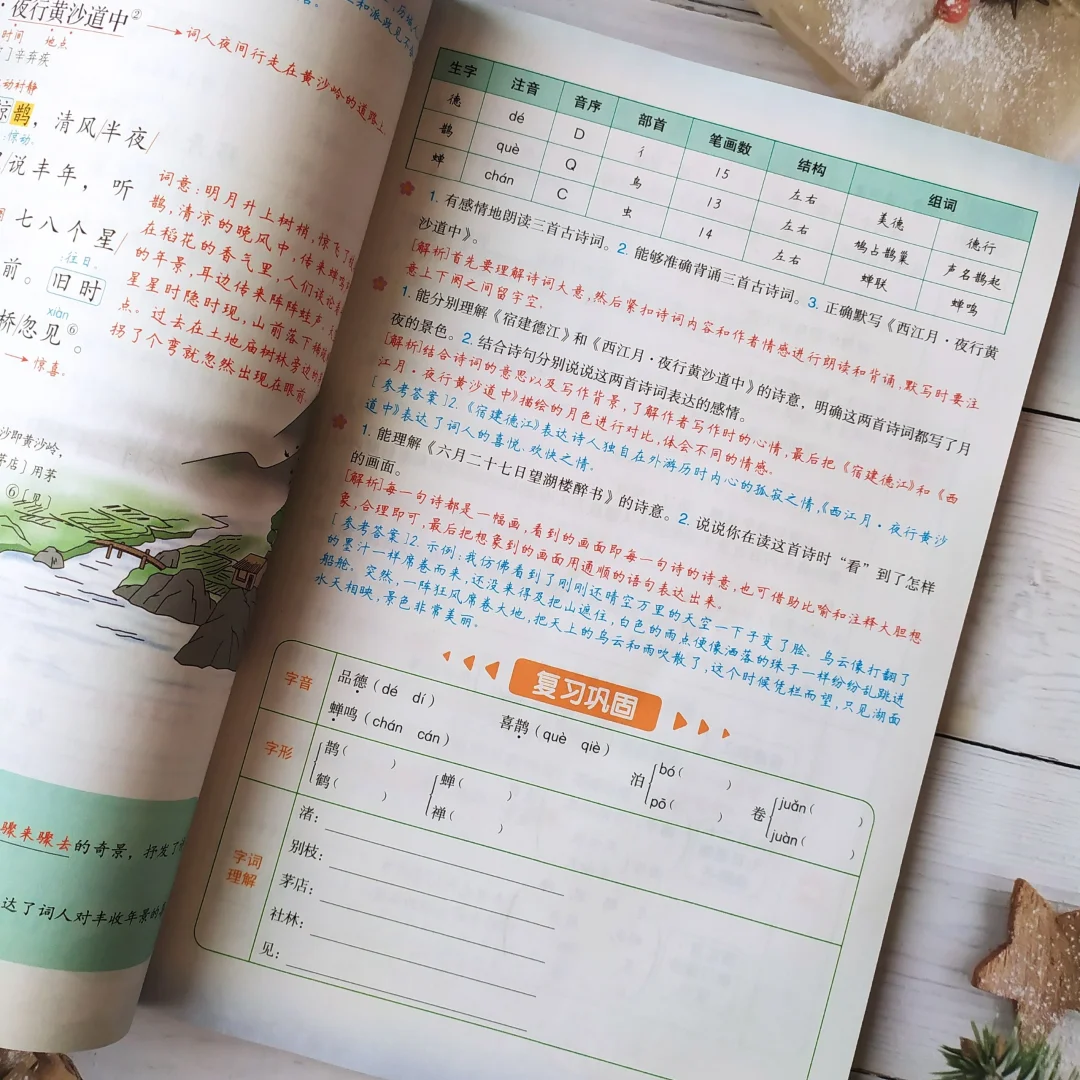 夜行黄沙道中②
词人夜间行走在黄沙岭的道路上
时间 地点
辛弃疾
鹊，清风/半夜/
惊动。
说丰年，听
七八个星/
往日。
前。旧时
xiàn
桥/忽见⑥。
惊喜。
词意：明月升上树梢，惊飞了
鹊，清凉的晚风中，传来蝉鸣
在稻花的香气里，人们谈论着
的年景，耳边传来阵阵蛙声。
星星时隐时现，山前落下
点。过去在土地庙树林旁边的
拐了个弯就忽然出现在眼前
沙即黄沙岭，
茅店］用茅
⑥［见］
骤来骤去的奇景，抒发了
达了词人对丰收年景的
生字 注音 音序 部首 笔画数 结构 组词
德 dé D 彳 15 左右 美德 德行
鹊 què Q 鸟 13 左右 鸠占鹊巢 声名鹊起
蝉 chán C 虫 14 左右 蝉联 蝉鸣
1. 有感情地朗读三首古诗词。2. 能够准确背诵三首古诗词。3. 正确默写《西江月·夜行黄
沙道中》。
[解析]首先要理解诗词大意，然后紧扣诗词内容和作者情感进行朗读和背诵，默写时要注
意上下阕之间留字空。
1. 能分别理解《宿建德江》和《西江月·夜行黄沙道中》的诗意，明确这两首诗词都写了月
夜的景色。2. 结合诗句分别说说这两首诗词表达的感情。
[解析]结合诗词的意思以及写作背景，了解作者写作时的心情，最后把《宿建德江》和《西
江月·夜行黄沙道中》描绘的月色进行对比，体会不同的情感。
[参考答案]2.《宿建德江》表达诗人独自在外游历时内心的孤寂之情，《西江月·夜行黄沙
道中》表达了词人的喜悦、欢快之情。
1. 能理解《六月二十七日望湖楼醉书》的诗意。2. 说说你在读这首诗时“看”到了怎样
的画面。
[解析]每一句诗都是一幅画，看到的画面即每一句诗的诗意，也可借助比喻和注释大胆想
象，合理即可，最后把想象到的画面用通顺的语句表达出来。
[参考答案]2. 示例：我仿佛看到了刚刚还晴空万里的天空一下子变了脸。乌云像打翻了
的墨汁一样席卷而来，还没来得及把山遮住，白色的雨点便像洒落的珠子一样纷纷乱跳进
船舱。突然，一阵狂风席卷大地，把天上的乌云和雨吹散了，这个时候凭栏而望，只见湖面
水天相映，景色非常美丽。
复习巩固
字音 品德（dé dí） 喜鹊（què qiè）
蝉鸣（chán cán）
字形 鹊（ ） 蝉（ ） 泊 bó（ ） 卷 juǎn（ ）
鹤（ ） 禅（ ） pō（ ） juàn（ ）
字词理解
渚：
别枝：
茅店：
社林：
见：